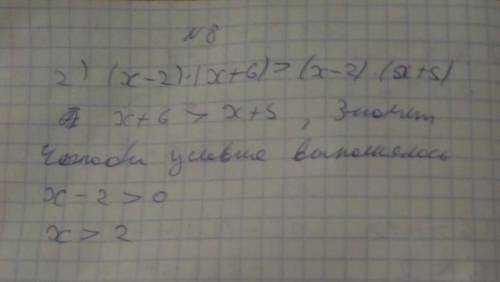 №8
2) (x-2)·(x+6)>(x-2)(x+5)
x+6 > x+5, Значит
Чтобы условие выполнялось
x-2>0
x>2